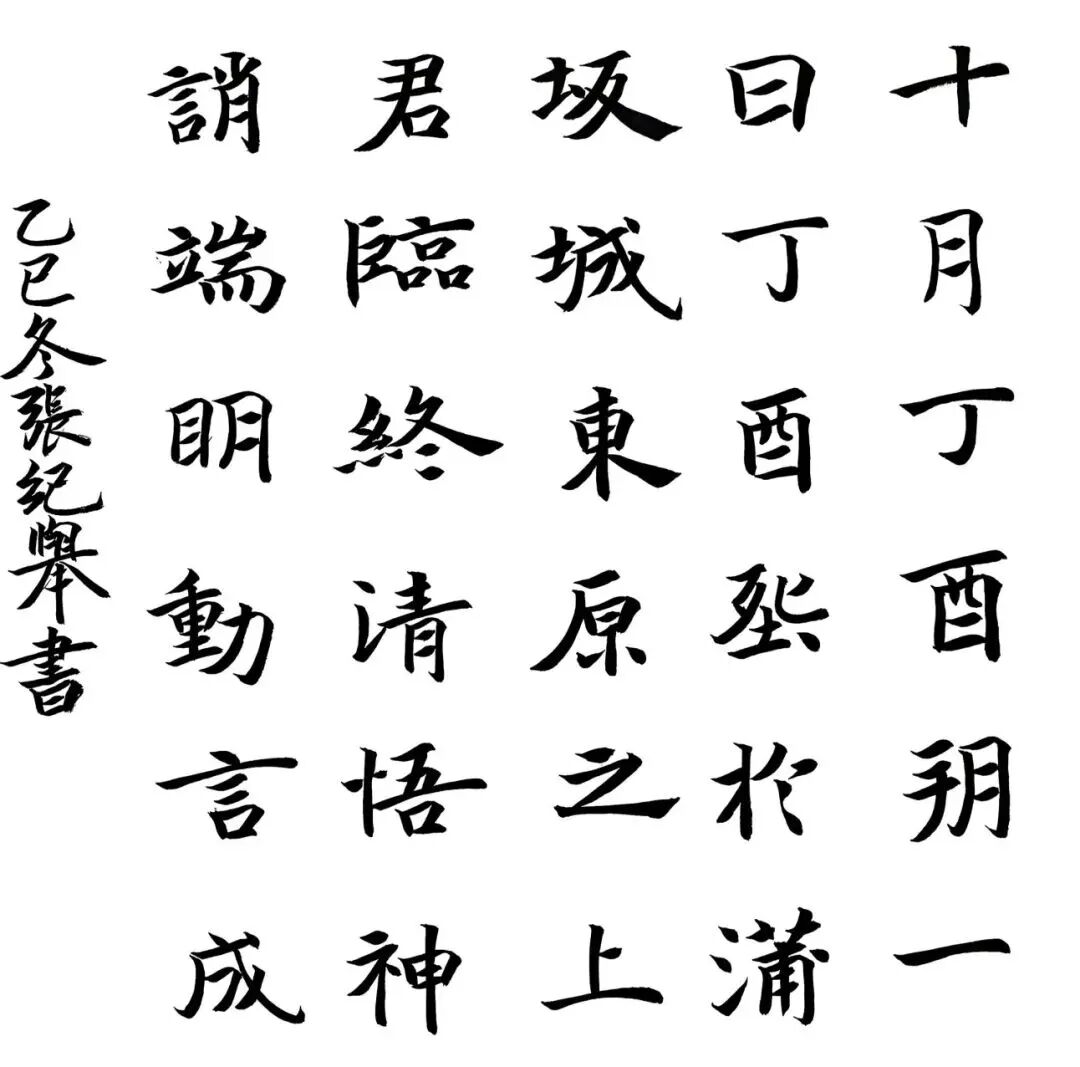 十月丁酉朔一
日丁酉塟於蒲
坂城東原之上
君臨終清悟神
誚端眀動言成
乙巳冬張紀舉書